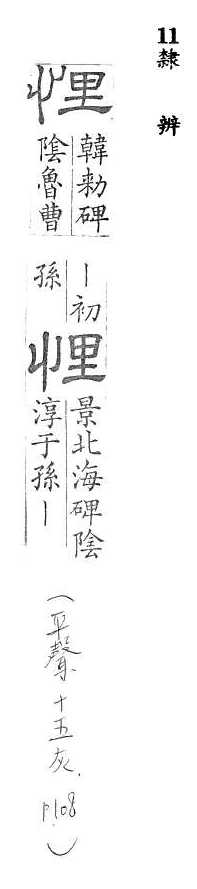 11隸辨
悝
韓勑碑
陰魯曹
丨初
孫
悝
景北海碑陰
淳于孫丨
(平聲十五灰.p108)